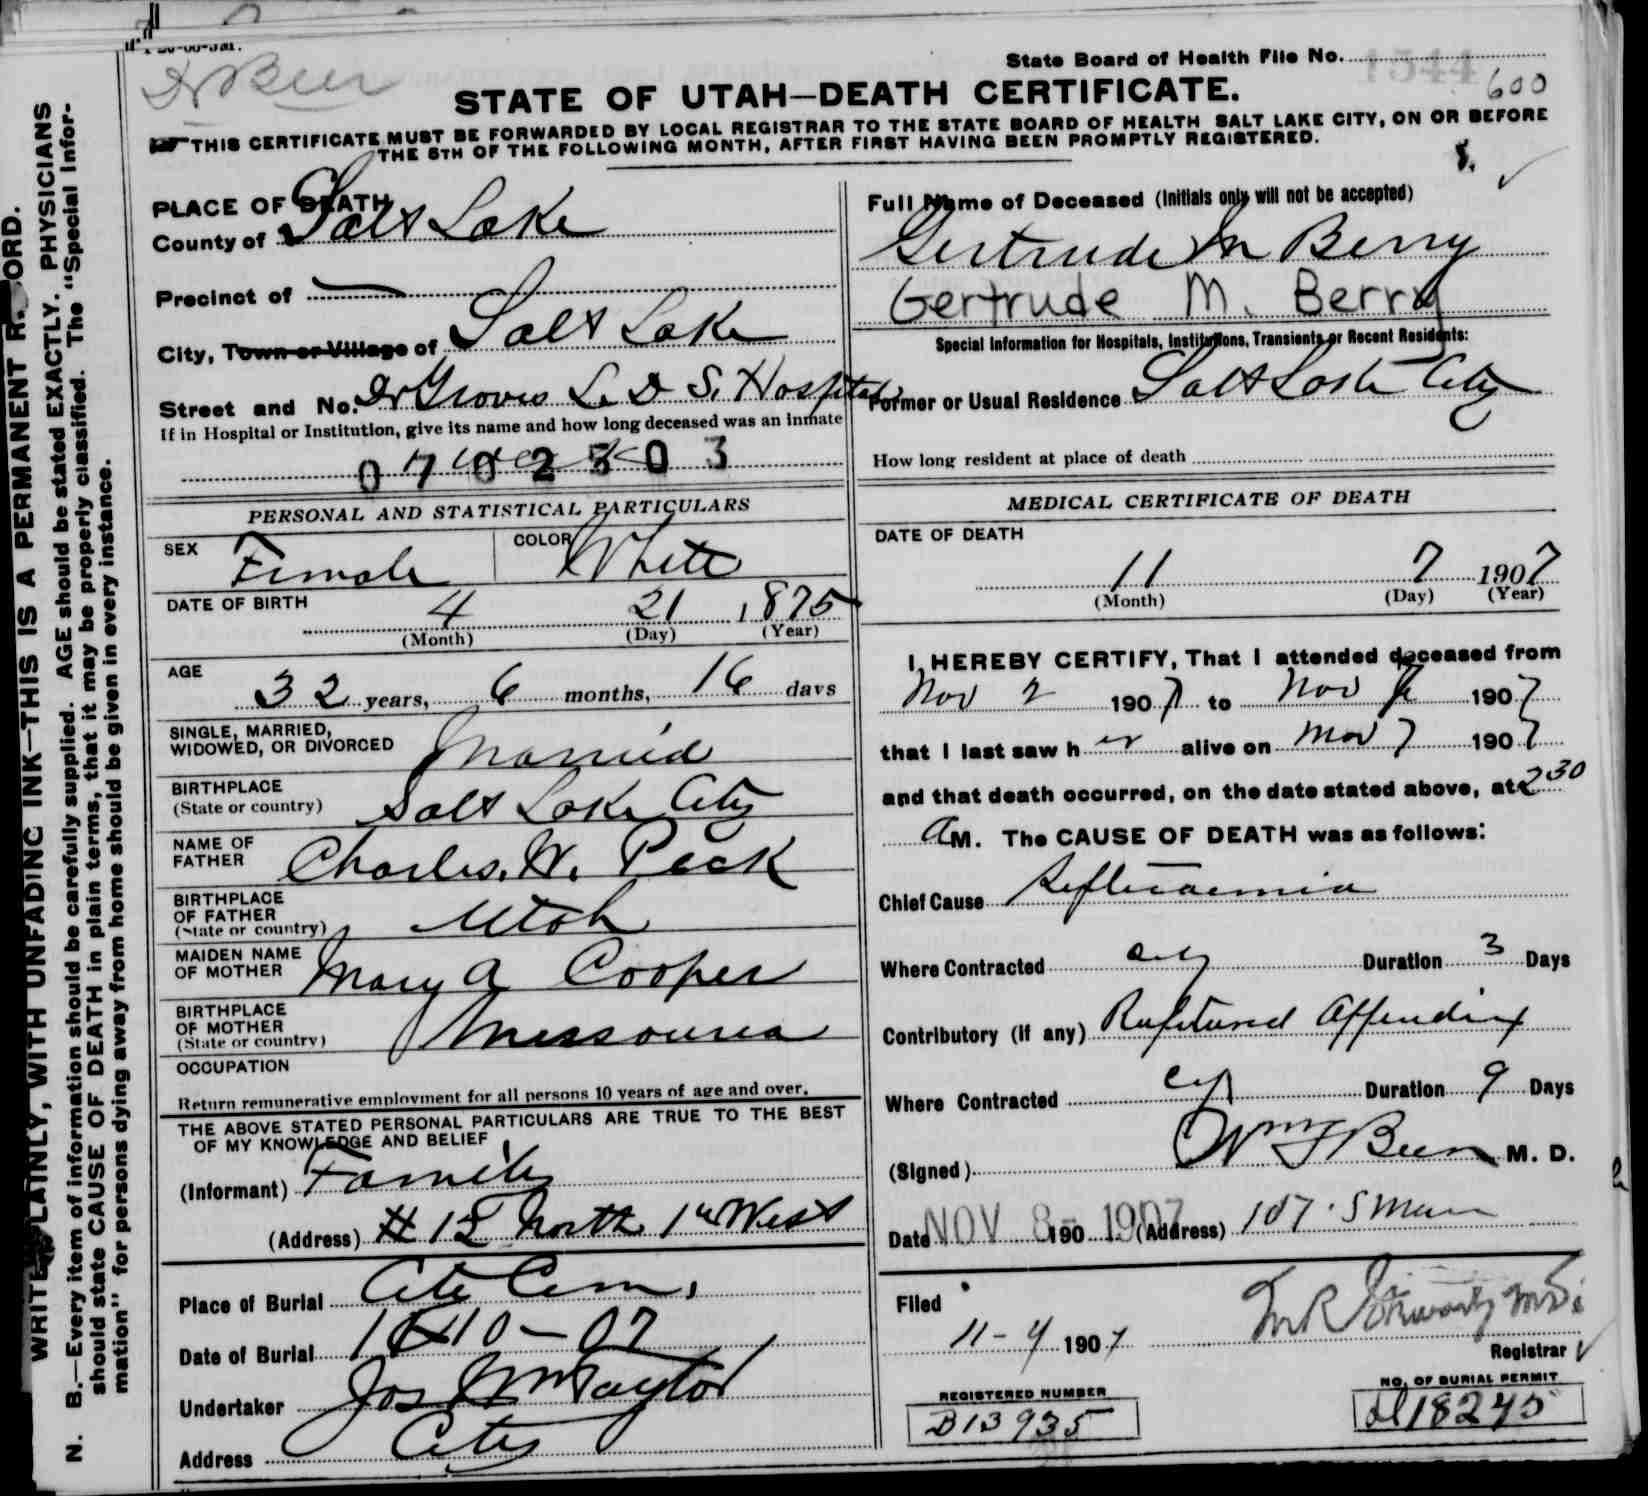 Dr Beer
State Board of Health File No. 1544
600
STATE OF UTAH—DEATH CERTIFICATE.
THIS CERTIFICATE MUST BE FORWARDED BY LOCAL REGISTRAR TO THE STATE BOARD OF HEALTH SALT LAKE CITY, ON OR BEFORE
THE 5TH OF THE FOLLOWING MONTH, AFTER FIRST HAVING BEEN PROMPTLY REGISTERED.
WRITE PLAINLY, WITH UNFADING INK—THIS IS A PERMANENT RECORD.
N. B.—Every item of information should be carefully supplied. AGE should be stated EXACTLY. PHYSICIANS
should state CAUSE OF DEATH in plain terms, that it may be properly classified. The "Special Infor-
mation" for persons dying away from home should be given in every instance.
PLACE OF DEATH
County of Salt Lake
Precinct of
City, Town or Village of Salt Lake
Street and No. Dr Groves L. D S. Hospital
If in Hospital or Institution, give its name and how long deceased was an inmate
0702303
PERSONAL AND STATISTICAL PARTICULARS
SEX Female COLOR White
DATE OF BIRTH 4 21 1875
(Month) (Day) (Year)
AGE 32 years, 6 months, 16 days
SINGLE, MARRIED,
WIDOWED, OR DIVORCED Married
BIRTHPLACE
(State or country) Salt Lake City
NAME OF
FATHER Charles. W. Peck
BIRTHPLACE
OF FATHER
(State or country) Utah
MAIDEN NAME
OF MOTHER Mary A Cooper
BIRTHPLACE
OF MOTHER
(State or country) Missouria
OCCUPATION
Return remunerative employment for all persons 10 years of age and over.
THE ABOVE STATED PERSONAL PARTICULARS ARE TRUE TO THE BEST
OF MY KNOWLEDGE AND BELIEF
(Informant) Family
(Address) # 12 North 1st West
Place of Burial City Cem.
Date of Burial 10-07
Undertaker Jos Wm Taylor
Address City
Full Name of Deceased (Initials only will not be accepted)
Gertrude M Berry
Gertrude M. Berry
Special Information for Hospitals, Institutions, Transients or Recent Residents:
Former or Usual Residence Salt Lake City
How long resident at place of death
MEDICAL CERTIFICATE OF DEATH
DATE OF DEATH
11 7 1907
(Month) (Day) (Year)
I, HEREBY CERTIFY, That I attended deceased from
Nov 2 1907 to Nov 7 1907
that I last saw her alive on Nov 7 1907
and that death occurred, on the date stated above, at 2 30
A M. The CAUSE OF DEATH was as follows:
Chief Cause Septicaemia
Where Contracted City Duration 3 Days
Contributory (if any) Ruptured Appendix
Where Contracted City Duration 9 Days
(Signed) Wm F Beer M. D.
Date NOV 8- 1907 190 (Address) 107. S Main
Filed
11-9 1907 M R Schwartz MD
Registrar
REGISTERED NUMBER
B13935
NO. OF BURIAL PERMIT
A18245